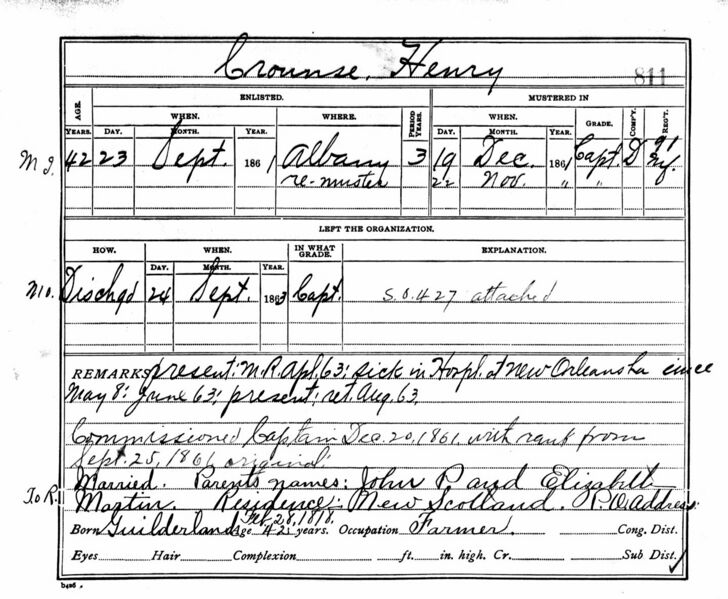 Crounse, Henry
811
AGE. ENLISTED. MUSTERED IN
WHEN. WHERE. PERIOD YEARS. WHEN. GRADE. COMP'Y. REG'T.
YEARS. DAY. MONTH. YEAR. DAY. MONTH. YEAR.
42 23 Sept. 1861 Albany 3 19 Dec. 1861 Capt. D 91 Ny.
re-muster 22 Nov. " "
LEFT THE ORGANIZATION.
HOW. WHEN. IN WHAT GRADE. EXPLANATION.
DAY. MONTH. YEAR.
Dischgd 24 Sept. 1863 Capt. S.O. 427 attached
REMARKS present: M.R. Apl, 63: sick in Hospl. at New Orleans La since
May 8: June 63: present: ret. Aug. 63.
Commissioned Captain Dec. 20, 1861, with rank from
Sept. 25, 1861 original.
Married. Parents names: John P. and Elizabeth
To R. Martin. Residence: New Scotland. P.O. Address:
Feb. 28, 1818.
Born Guilderland Age 42 years. Occupation Farmer. Cong. Dist.
Eyes Hair Complexion ft. in. high. Cr. Sub Dist.